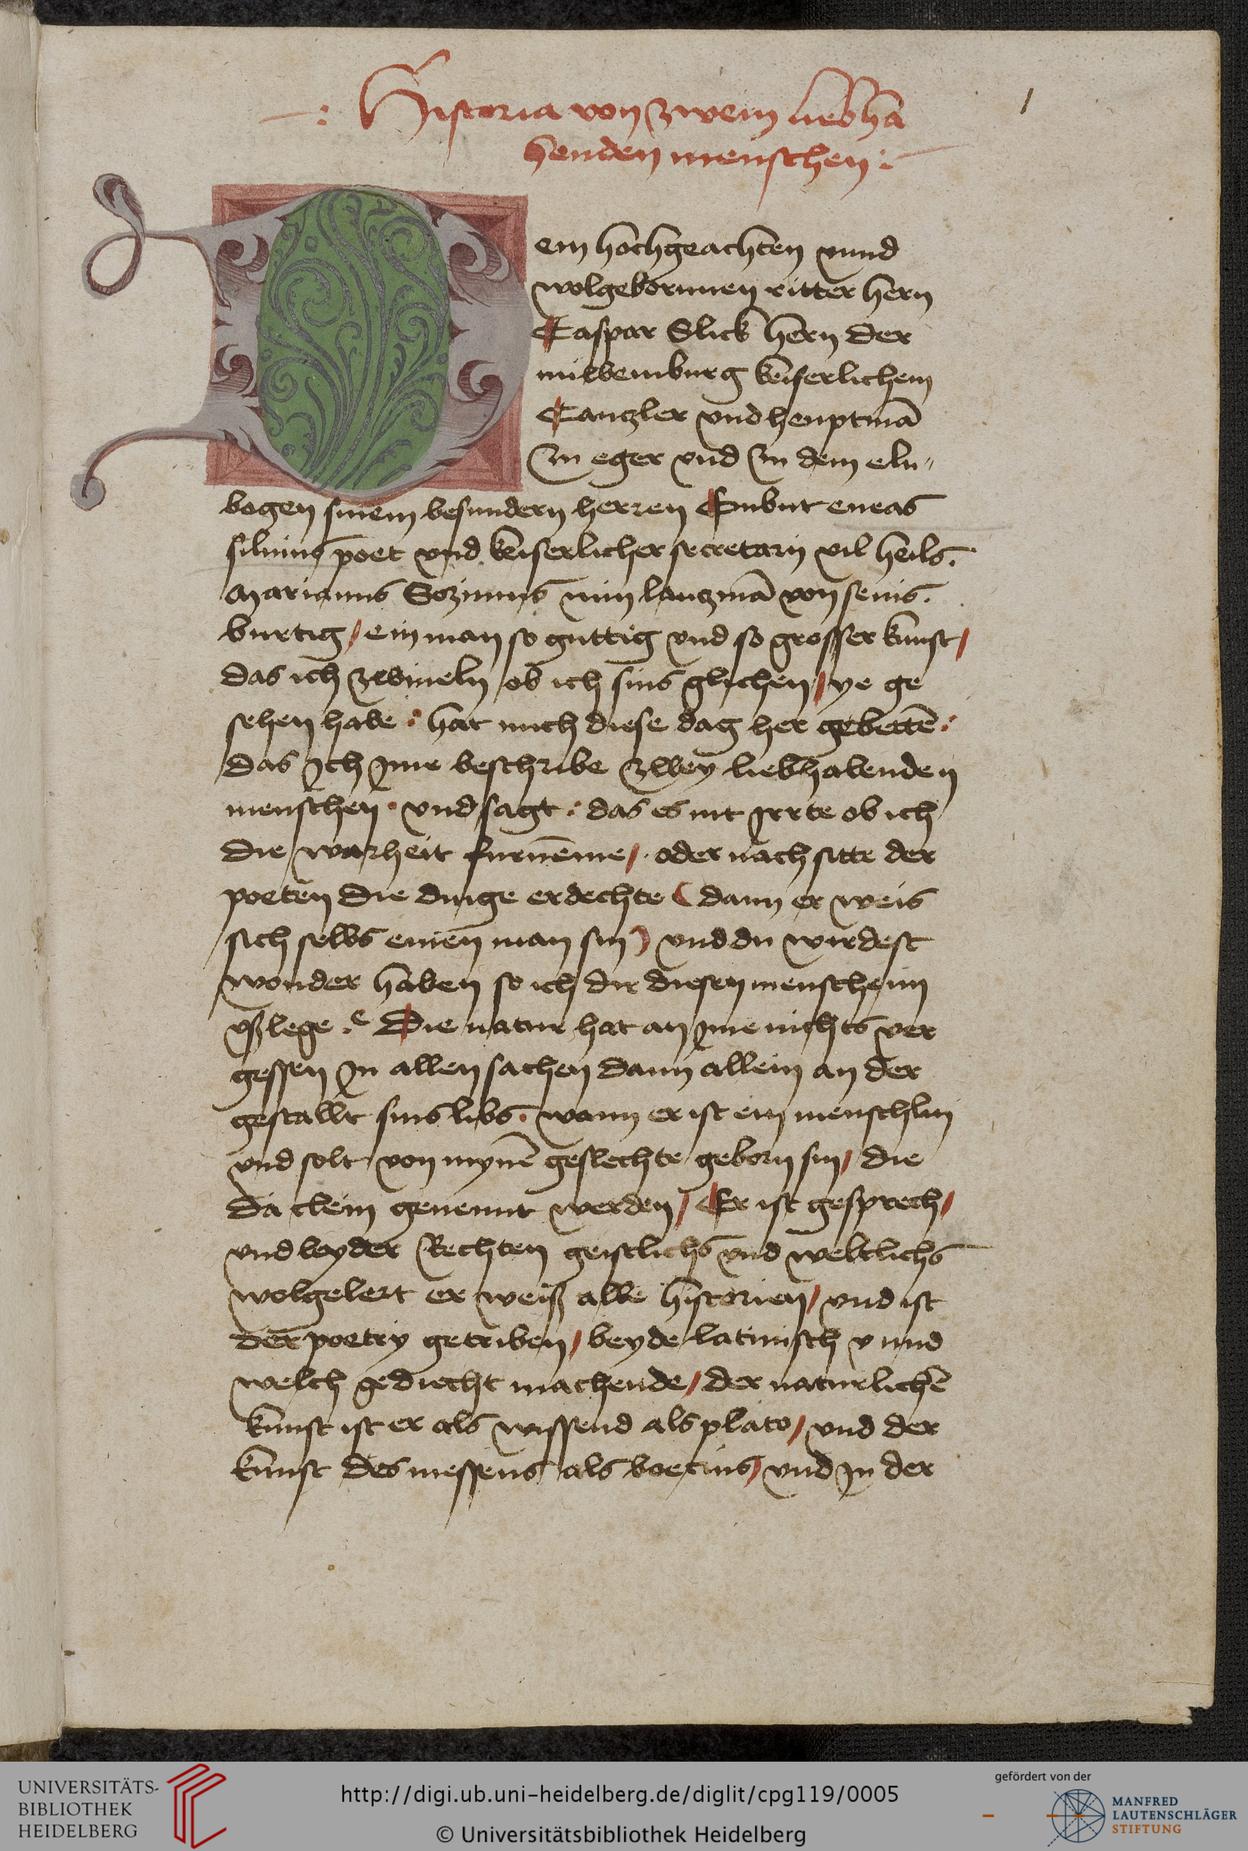 Historia von zwein liebha
henden menschen
1
Dem hochgeachten vnnd
wolgebornnen ritter hern
Caspar Slick hern der
nuwemburg keiserlichem
Cantzler vnd heuptmā
zu eger vnd zu dem eln
bogen sinem besundern herren Enbut eneas
siluius poet vnd keiserlicher secretary vil heils.
Marianus Sozinus min lantzmā von senis.
burtig / ein man so guttig vnd so grosser kunst /
das ich zwiueln ob ich sins glichen / ye ge
sehen habe : hat mich diese dag her gebettē :
das Ich Ime beschribe zwey liebhabenden
menschen · vnd sagt : das es nit Irrte ob ich
die warheit furnēme / oder nach sitte der
poeten die dinge erdechte ( dann er weis
sich selbs einen man sin ) vnd du wirdest
wonder haben so ich dir diesen menschenn
vßlege . Die natur hat an Ime nichts ver
gessen In allen sachen dann allein an der
gestallt sins libs. wann er ist ein menschlin
vnd solt von mynē geslechte geborn sin / die
da clein genennt werden / Er ist gesprech /
vnd beyder Rechten geistlichs vnd weltlichs
wolgelert er weiß alle historien / vnd ist
der poetry getriben / beyde latinisch vnnd
welch gedicht machende / der naturlichē
kunst ist er als wissend als plato / vnd der
kunst des messens als boecius / vnd In der
UNIVERSITÄTS-
BIBLIOTHEK
HEIDELBERG
http://digi.ub.uni-heidelberg.de/diglit/cpg119/0005
© Universitätsbibliothek Heidelberg
gefördert von der
MANFRED
LAUTENSCHLÄGER
STIFTUNG